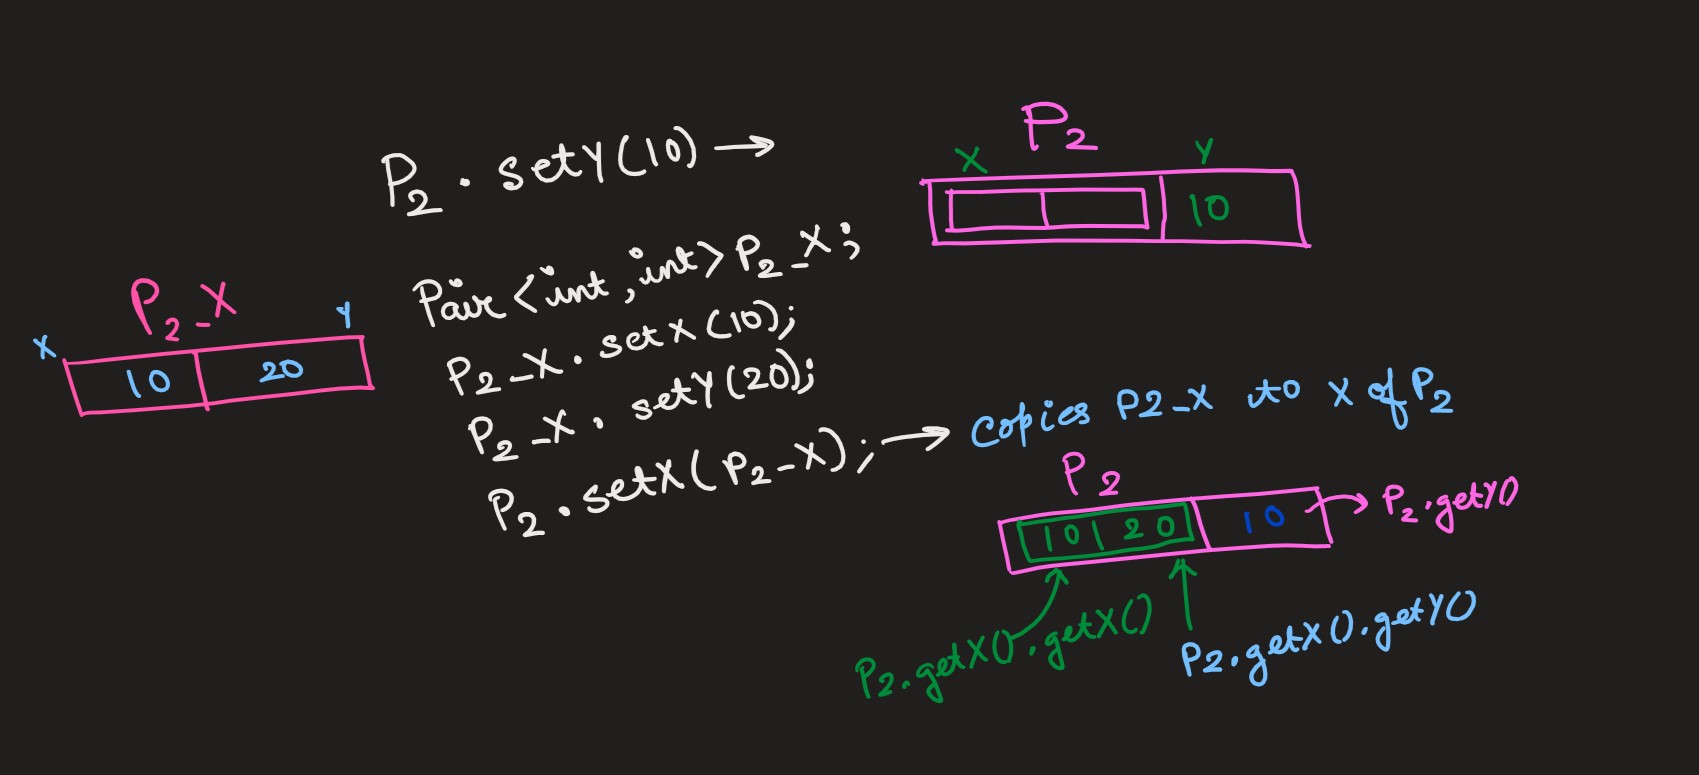 P2
X
Y
10
P2 . setY(10) →
P2_X
X
Y
10
20
Pair <int, int> P2_X;
P2_X . setX(10);
P2_X . setY(20);
P2 . setX(P2_X); → Copies P2_X to X of P2
P2
10 | 20
10
→ P2.getY()
P2.getX().getX()
P2.getX().getY()